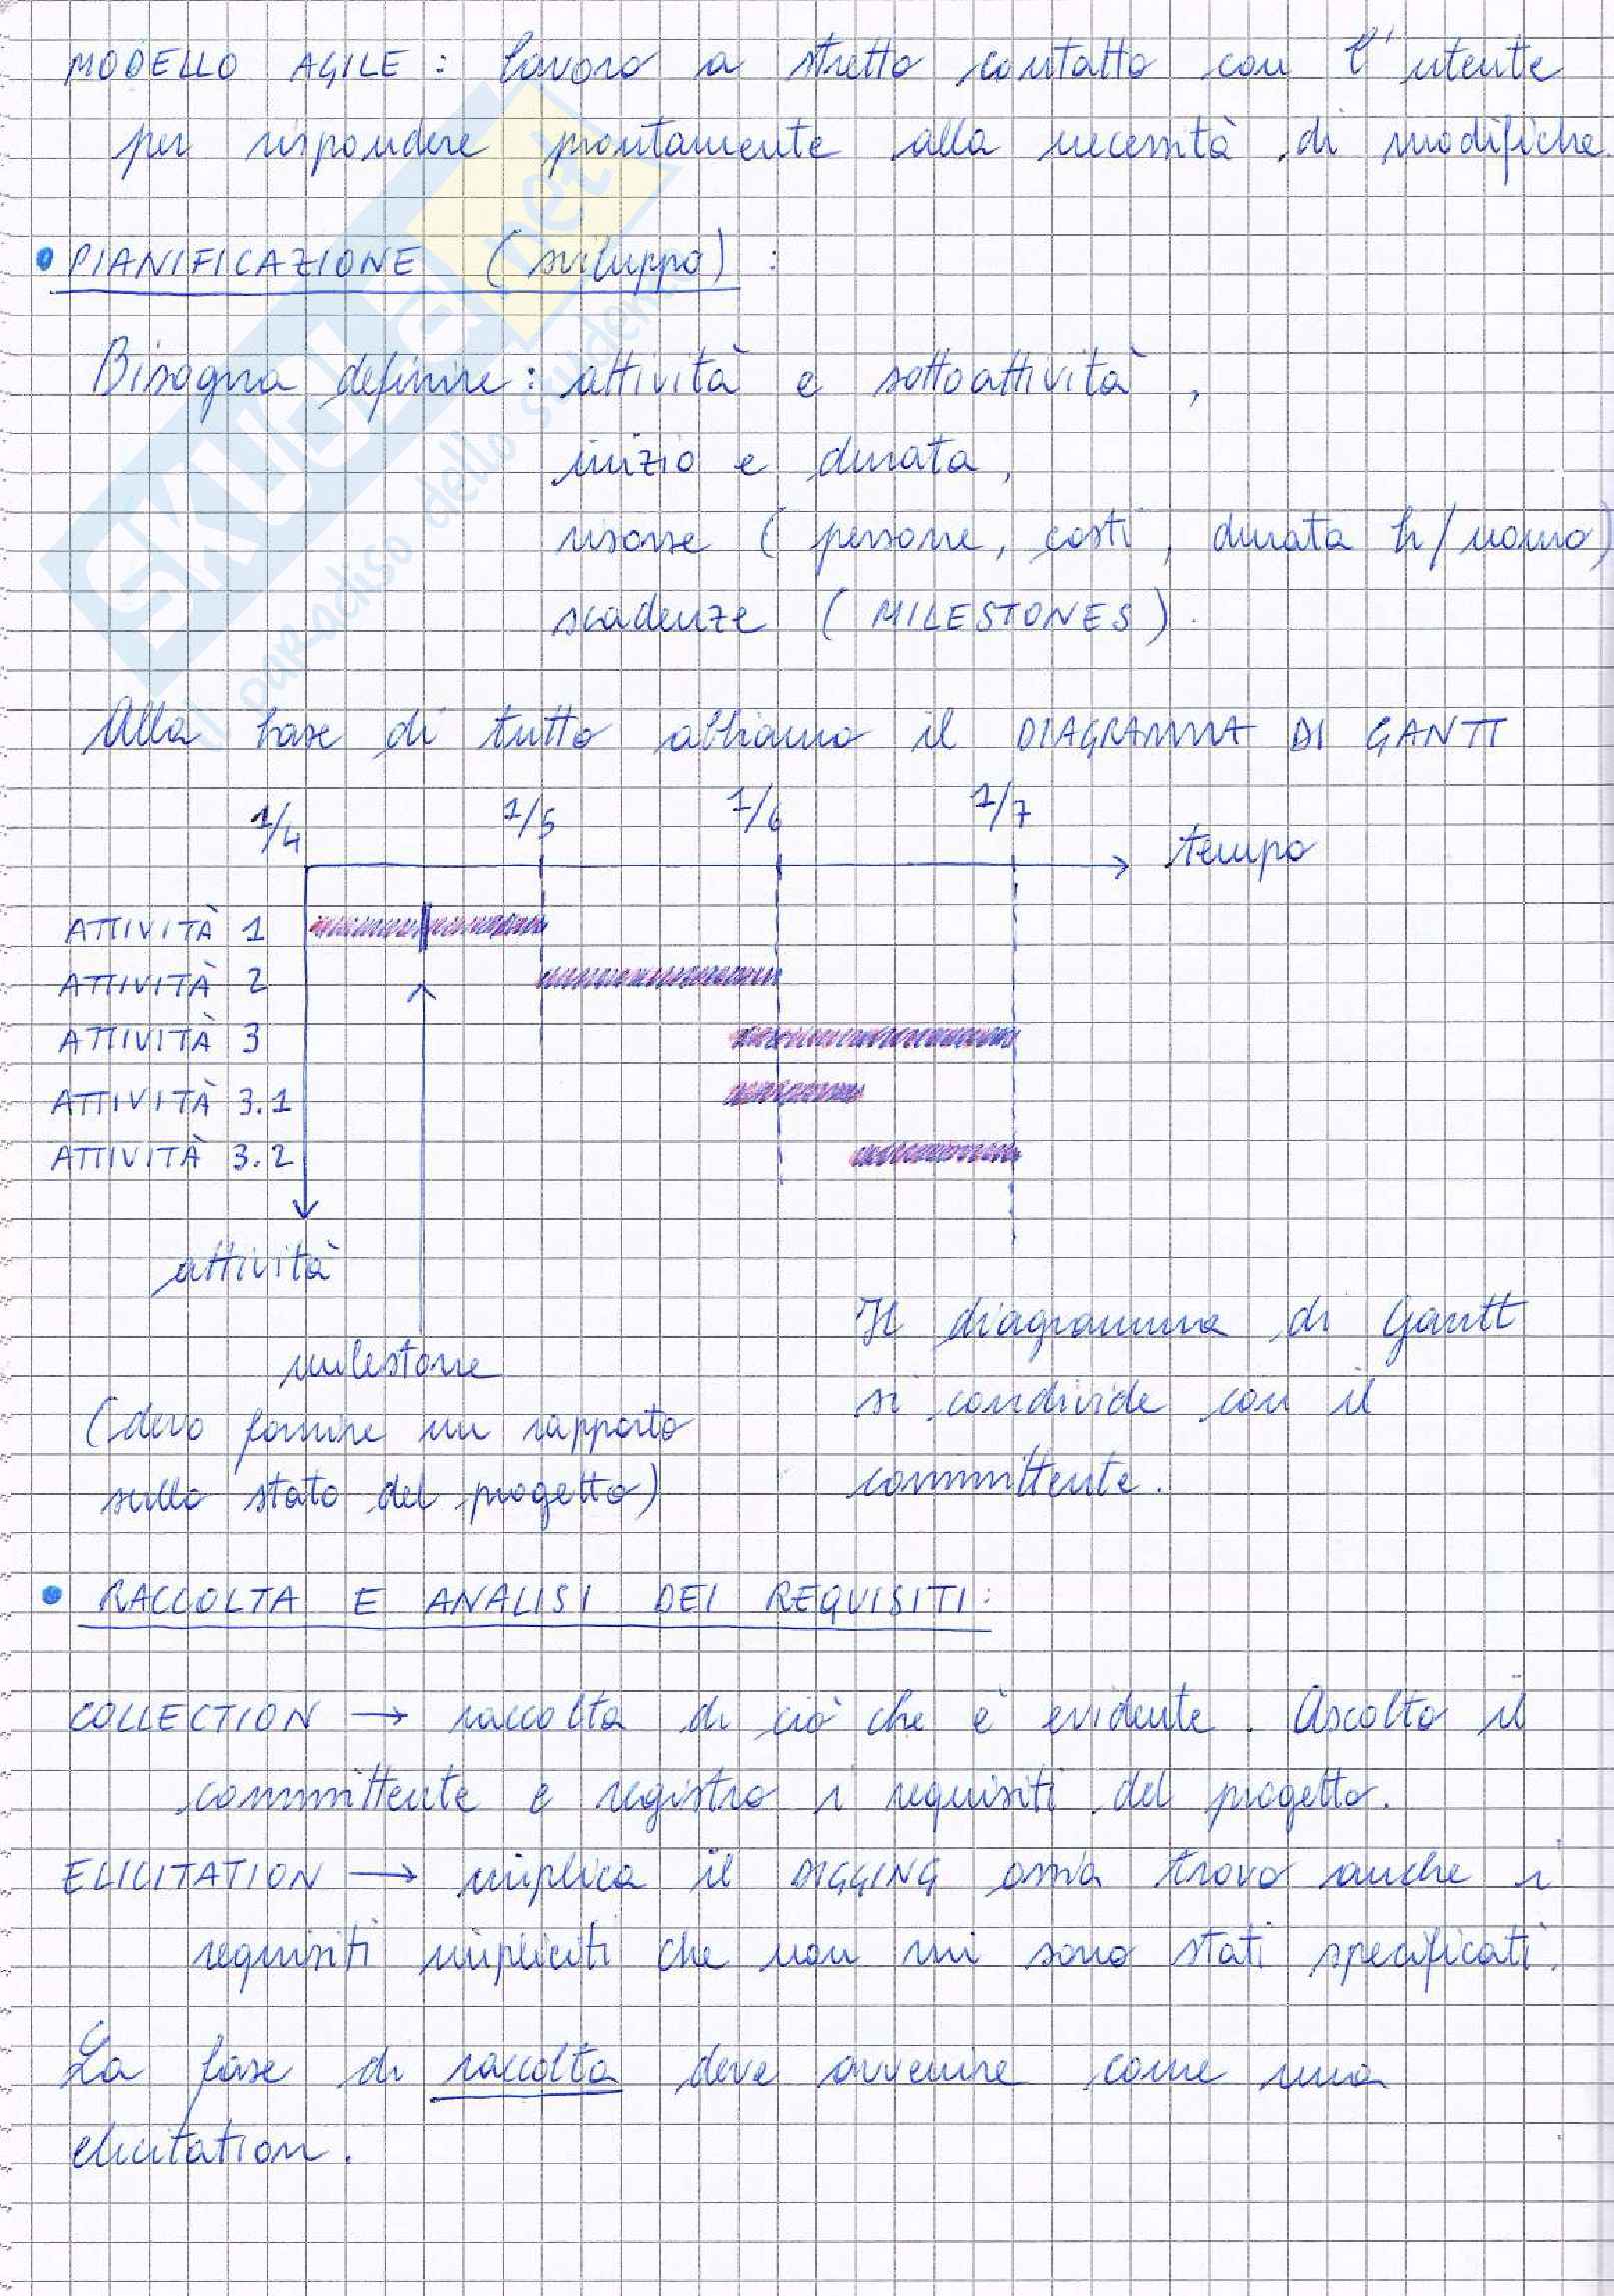 MODELLO AGILE : lavoro a stretto contatto con l'utente
per rispondere prontamente alla necessità di modifiche.
• PIANIFICAZIONE (sviluppo) :
Bisogna definire : attività e sottoattività,
inizio e durata,
risorse ( persone, costi, durata h/uomo)
scadenze ( MILESTONES ).
Alla base di tutto abbiamo il DIAGRAMMA DI GANTT
1/4 1/5 1/6 1/7
tempo
ATTIVITÀ 1
ATTIVITÀ 2
ATTIVITÀ 3
ATTIVITÀ 3.1
ATTIVITÀ 3.2
attività
milestone
(devo fornire un rapporto
sullo stato del progetto)
Il diagramma di Gantt
si condivide con il
committente.
• RACCOLTA E ANALISI DEI REQUISITI :
COLLECTION → raccolta di ciò che è evidente. Ascolto il
committente e registro i requisiti del progetto.
ELICITATION → implica il DIGGING ossia trovo anche i
requisiti impliciti che non mi sono stati specificati.
La fase di raccolta deve avvenire come una
elicitation.
SKUOLA.net
il paradiso dello studente